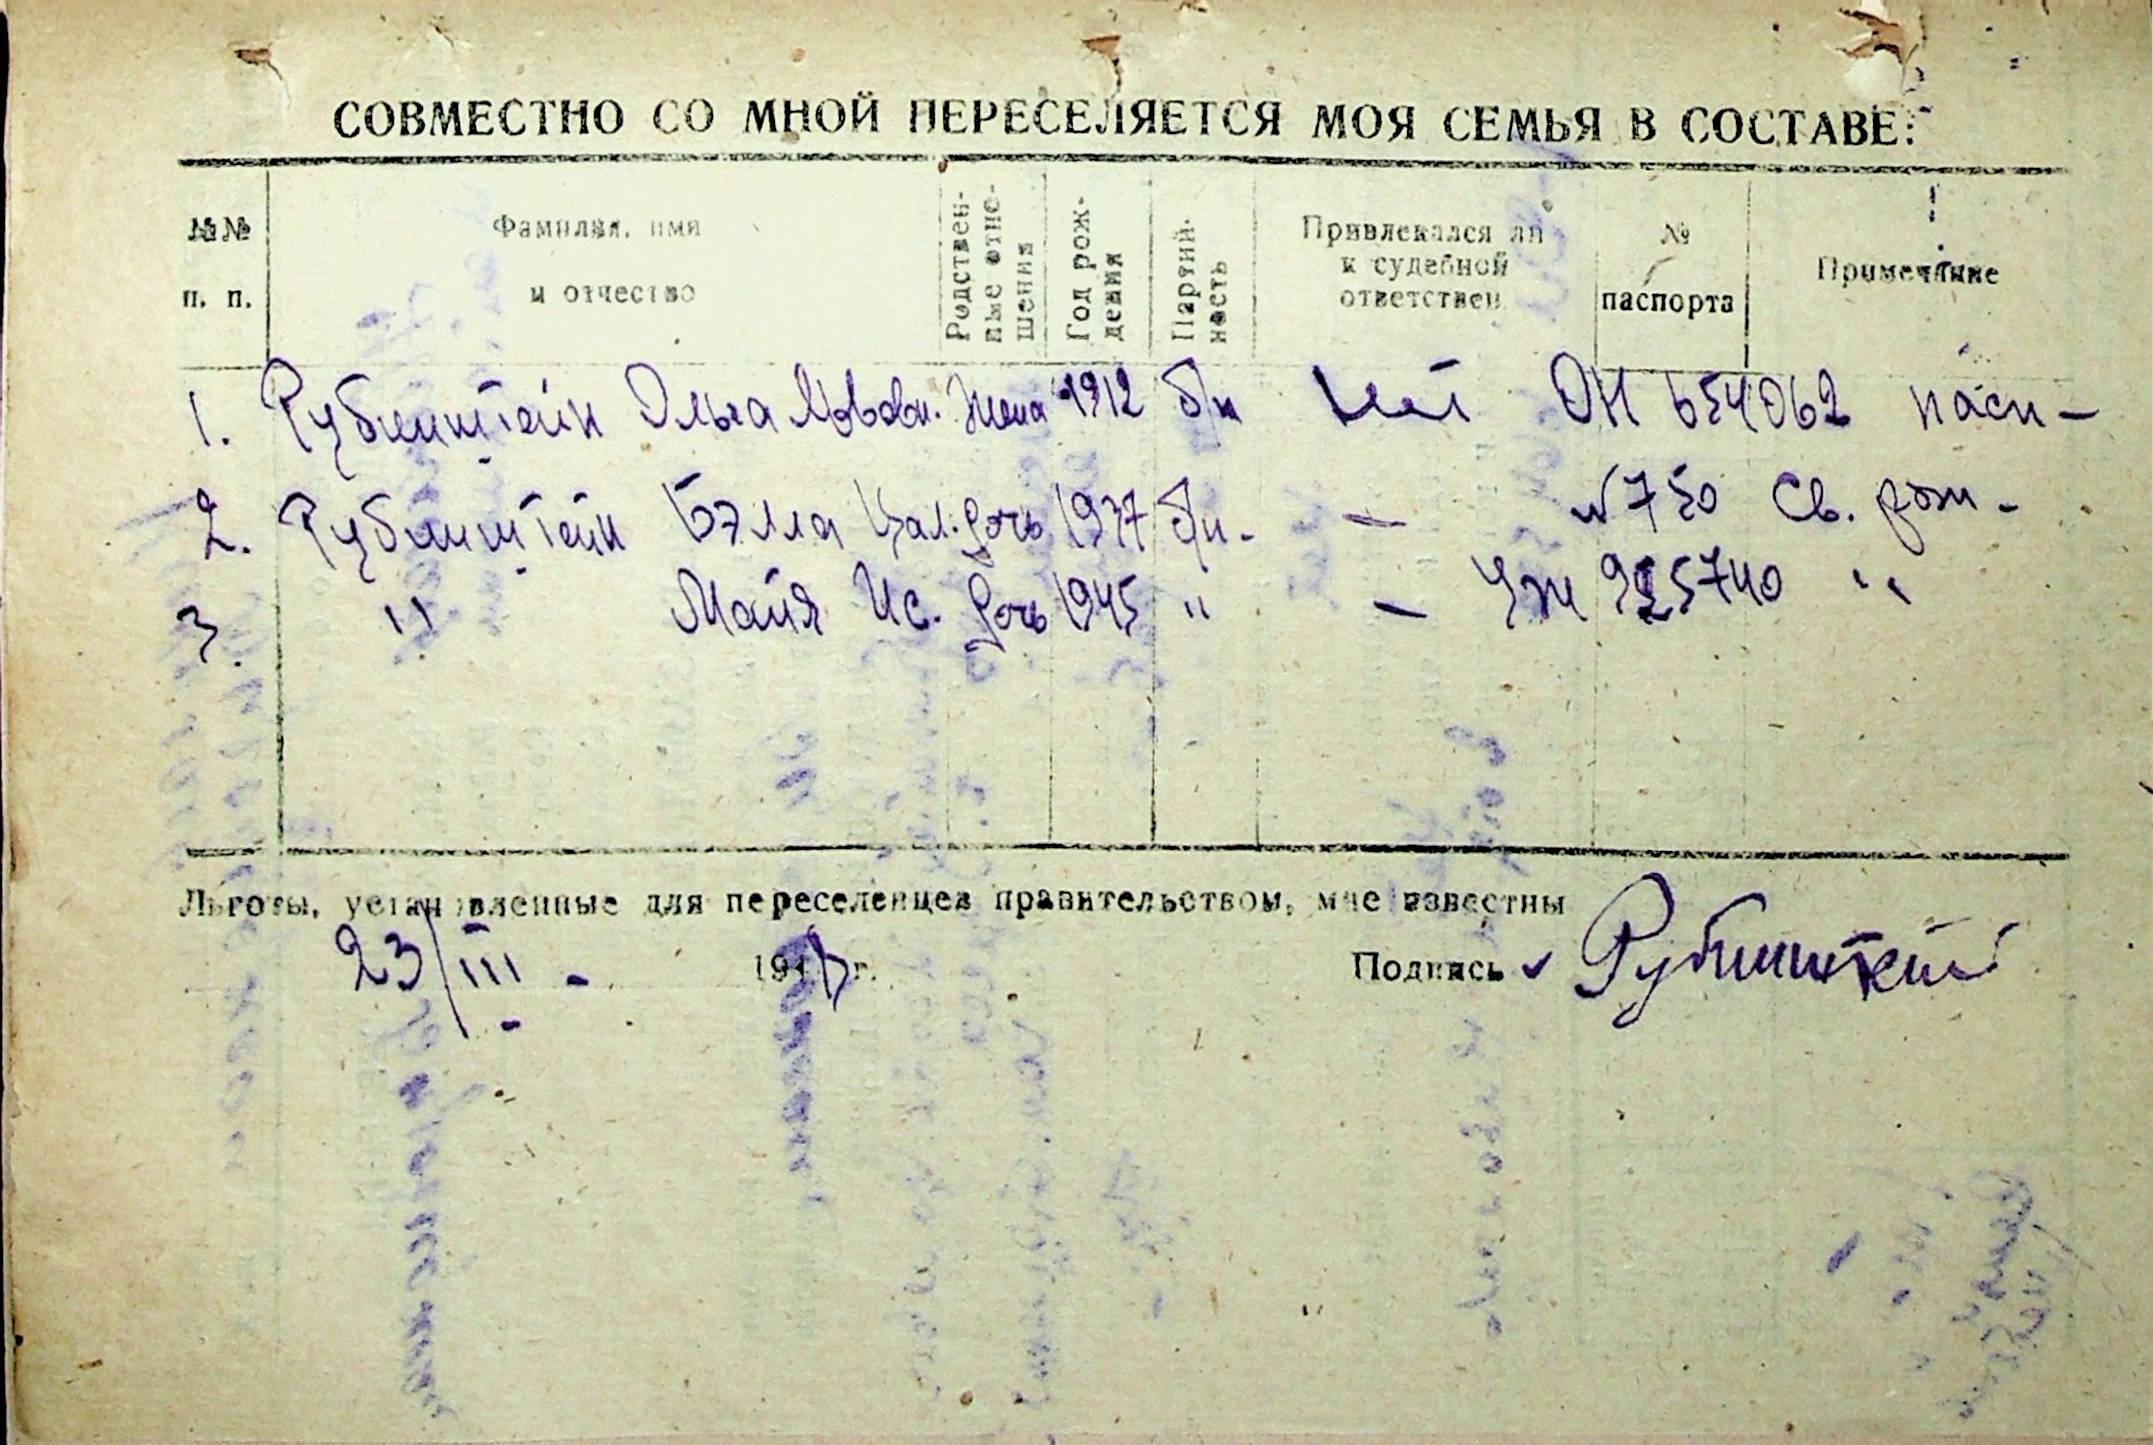 СОВМЕСТНО СО МНОЙ ПЕРЕСЕЛЯЕТСЯ МОЯ СЕМЬЯ В СОСТАВЕ:
№№ п. п. Фамилия, имя и отчество Родственные отношения Год рождения Партийность Привлекался ли к судебной ответствен № паспорта Примечание
1. Рубинштейн Ольга Жена 1912 б/п Нет ОН 654062 пасп-
2. Рубинштейн Бэлла дочь 1937 б/п - — №750 Св. рож-
3. " Майя Ис. дочь 1945 " — "
Льготы, установленные для переселенцев правительством, мне известны
23/III - 194 г. Подпись